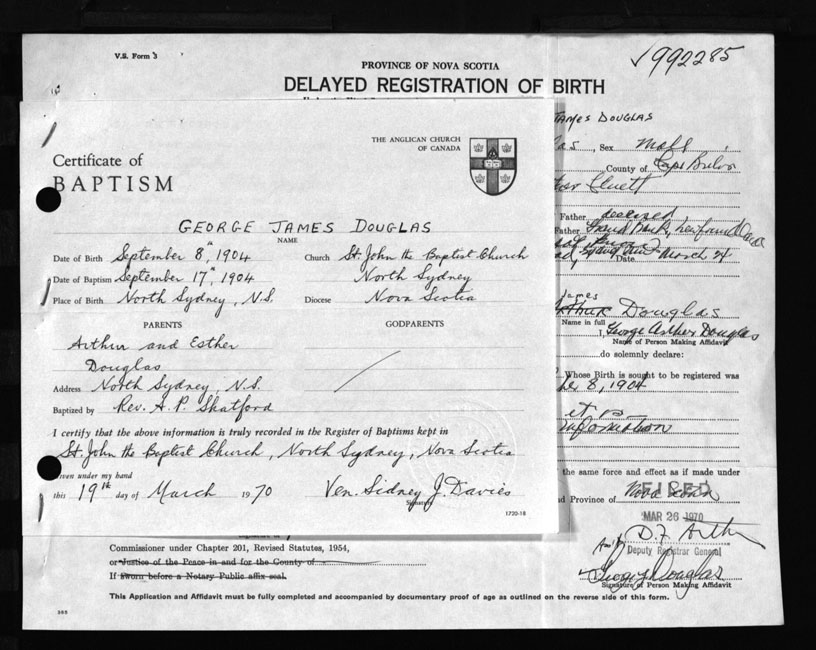 V.S. Form 3
PROVINCE OF NOVA SCOTIA
DELAYED REGISTRATION OF BIRTH
√992285
THE ANGLICAN CHURCH
OF CANADA
Certificate of
BAPTISM
GEORGE JAMES DOUGLAS
NAME
Date of Birth September 8th, 1904
Church St. John the Baptist Church
Date of Baptism September 17th, 1904
North Sydney
Place of Birth North Sydney, N.S.
Diocese Nova Scotia
PARENTS
GODPARENTS
Arthur and Esther
Douglas
Address North Sydney, N.S.
Baptized by Rev. A. P. Shatford
I certify that the above information is truly recorded in the Register of Baptisms kept in
St. John the Baptist Church, North Sydney, Nova Scotia
Given under my hand
this 19th day of March 1970
Ven. Sidney J. Davies
Signature
1720-18
JAMES DOUGLAS
, Sex Male
County of Cape Breton
Cluett
Father deceased
Father Grand Bank, Newfoundland
Date March 24
James
Arthur Douglas
Name in full
I, George Arthur Douglas
Name of Person Making Affidavit
do solemnly declare:
Whose Birth is sought to be registered was
8, 1904
it is
information
the same force and effect as if made under
nd Province of Nova Scotia
FILED
MAR 26 1970
Deputy Registrar General
George Douglas
Signature of Person Making Affidavit
Commissioner under Chapter 201, Revised Statutes, 1954,
or Justice of the Peace in and for the County of
If sworn before a Notary Public affix seal.
This Application and Affidavit must be fully completed and accompanied by documentary proof of age as outlined on the reverse side of this form.